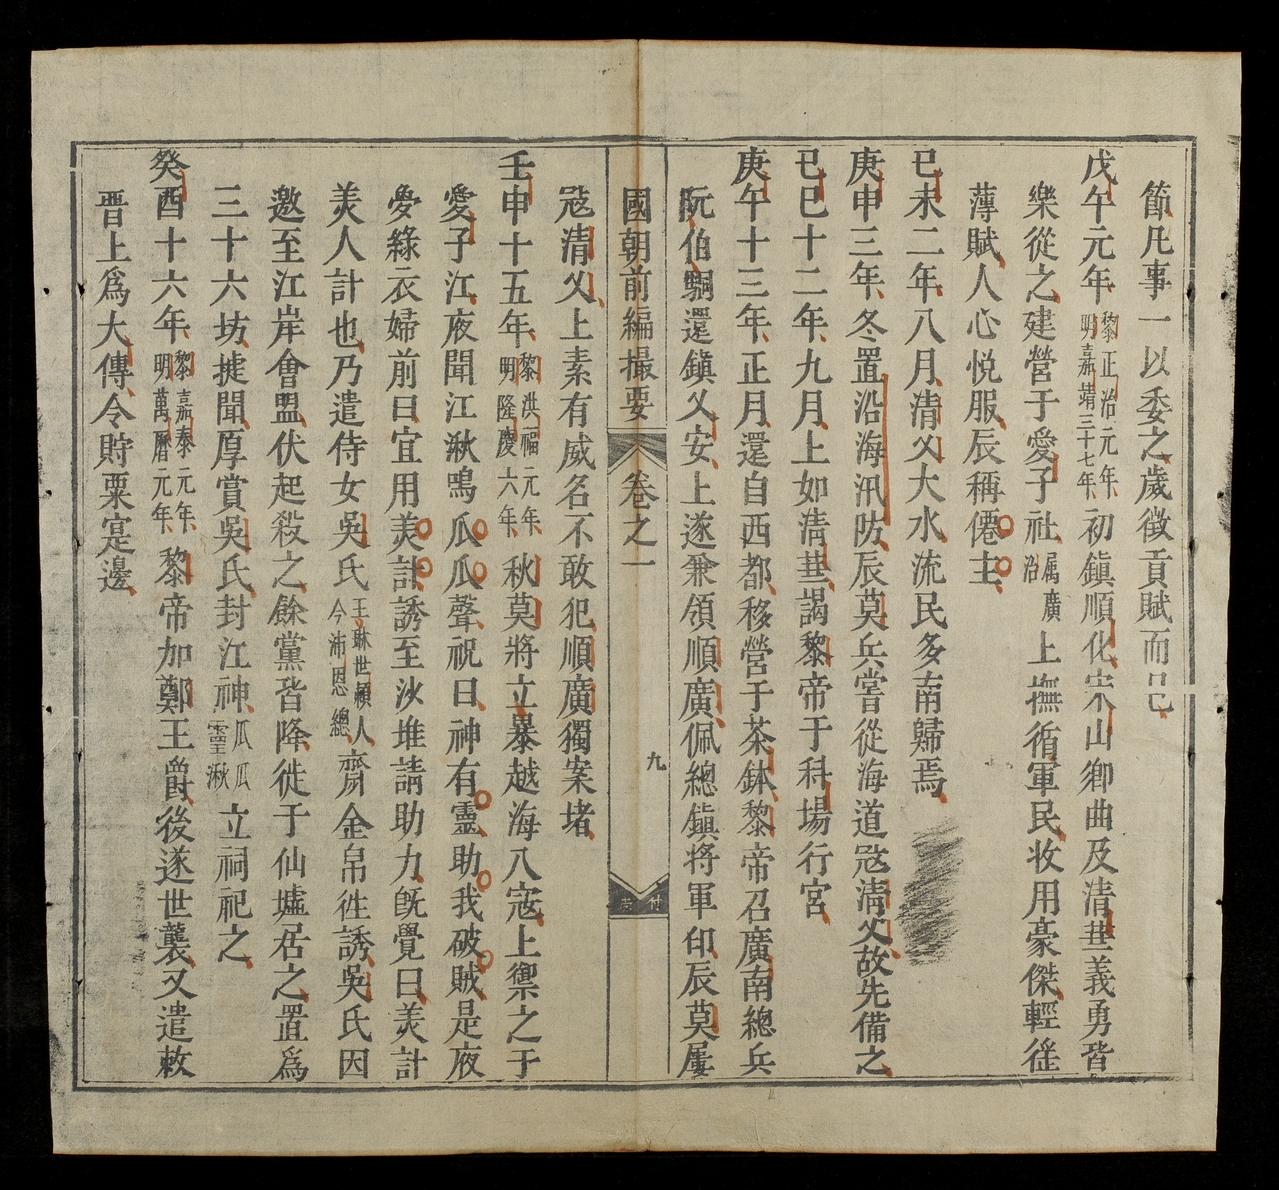 節凡事一以委之歲徵貢賦而已
戊午元年黎正治元年明嘉靖三十七年初鎮順化宋山鄉曲及清華義勇皆
樂從之建營于愛子社属廣治上撫循軍民收用豪傑輕徭
薄賦人心悅服辰稱僊主
己未二年八月清乂大水流民多南歸焉
庚申三年冬置沿海汛防辰莫兵嘗從海道寇清乂故先備之
己巳十二年九月上如清華謁黎帝于科場行宮
庚午十三年正月還自西都移營于茶鉢黎帝召廣南總兵
阮伯駉還鎮乂安上遂兼領順廣佩總鎮将軍印辰莫屢
國朝前編撮要 卷之一 九
寇清乂上素有威名不敢犯順廣獨案堵
壬申十五年黎洪福元年明隆慶六年秋莫將立暴越海入寇上禦之于
愛子江夜聞江湫鳴瓜瓜聲祝曰神有靈助我破賊是夜
夢綠衣婦前曰宜用美計誘至沙堆請助力既覺曰美計
美人計也乃遣侍女吳氏玉琳世賴人今沛恩總齎金帛徃誘吳氏因
邀至江岸會盟伏起殺之餘黨皆降徙于仙墟居之置爲
三十六坊捷聞厚賞吳氏封江神瓜瓜靈湫立祠祀之
癸酉十六年黎嘉泰元年明萬曆元年黎帝加鄭王爵後遂世襲又遣敕
晋上爲大傳令貯粟寔邊